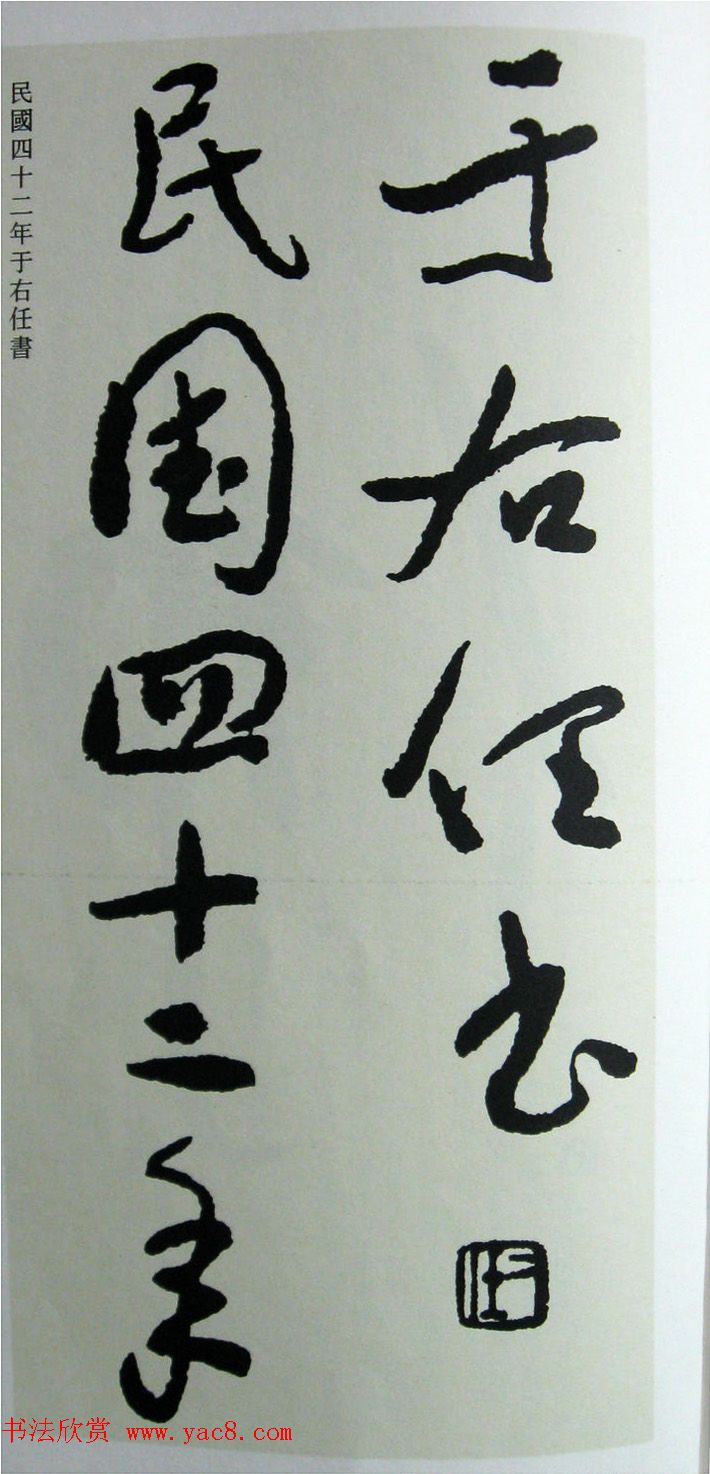 民国四十二年
于右任书
民國四十二年于右任書
书法欣赏 www.yac8.com